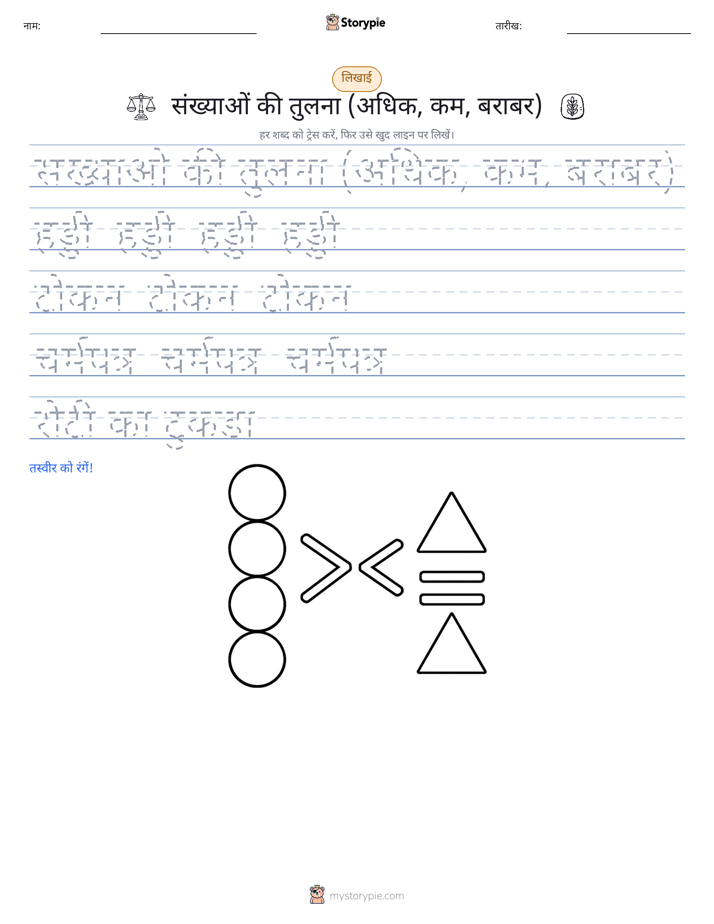 नाम:
Storypie
तारीख:
लिखाई
संख्याओं की तुलना (अधिक, कम, बराबर)
हर शब्द को ट्रेस करें, फिर उसे खुद लाइन पर लिखें।
संख्याओं की तुलना (अधिक, कम, बराबर)
हड्डी हड्डी हड्डी हड्डी
टोकन टोकन टोकन
चर्मपत्र चर्मपत्र चर्मपत्र
रोटी का टुकड़ा
तस्वीर को रंगें!
mystorypie.com